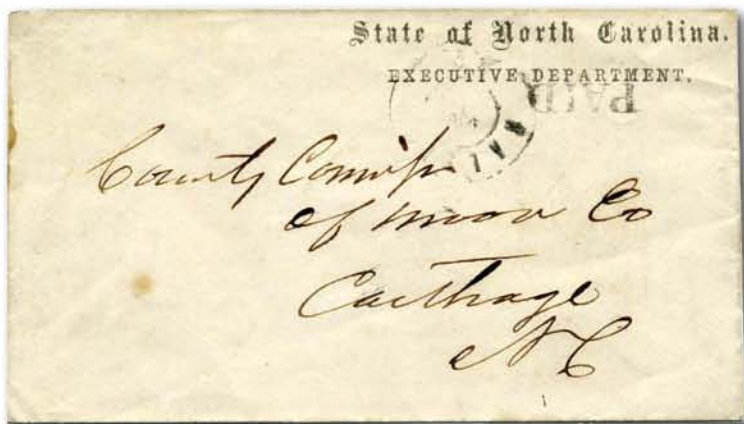 State of North Carolina.
EXECUTIVE DEPARTMENT.
PAID
County
of Moore Co
Carthage
NC